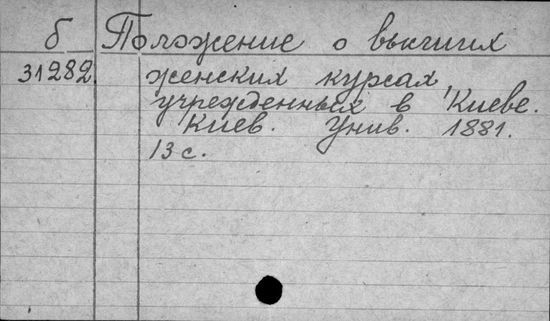 б Положение о высших
31282. женских курсах,
учрежденных в Киеве.
Киев. Унив. 1881.
13 с.